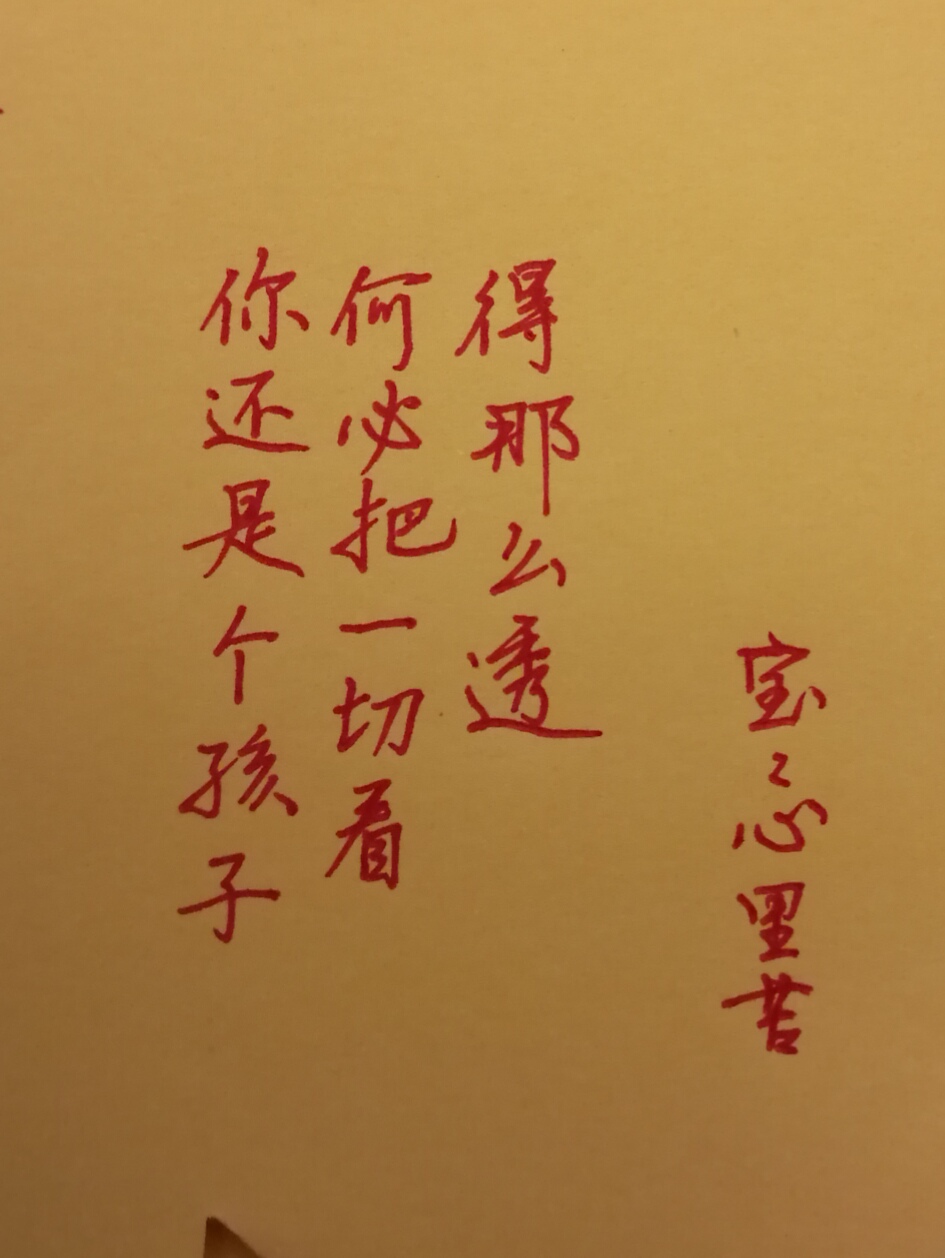 你还是个孩子
何必把一切看
得那么透
宝〻心里苦